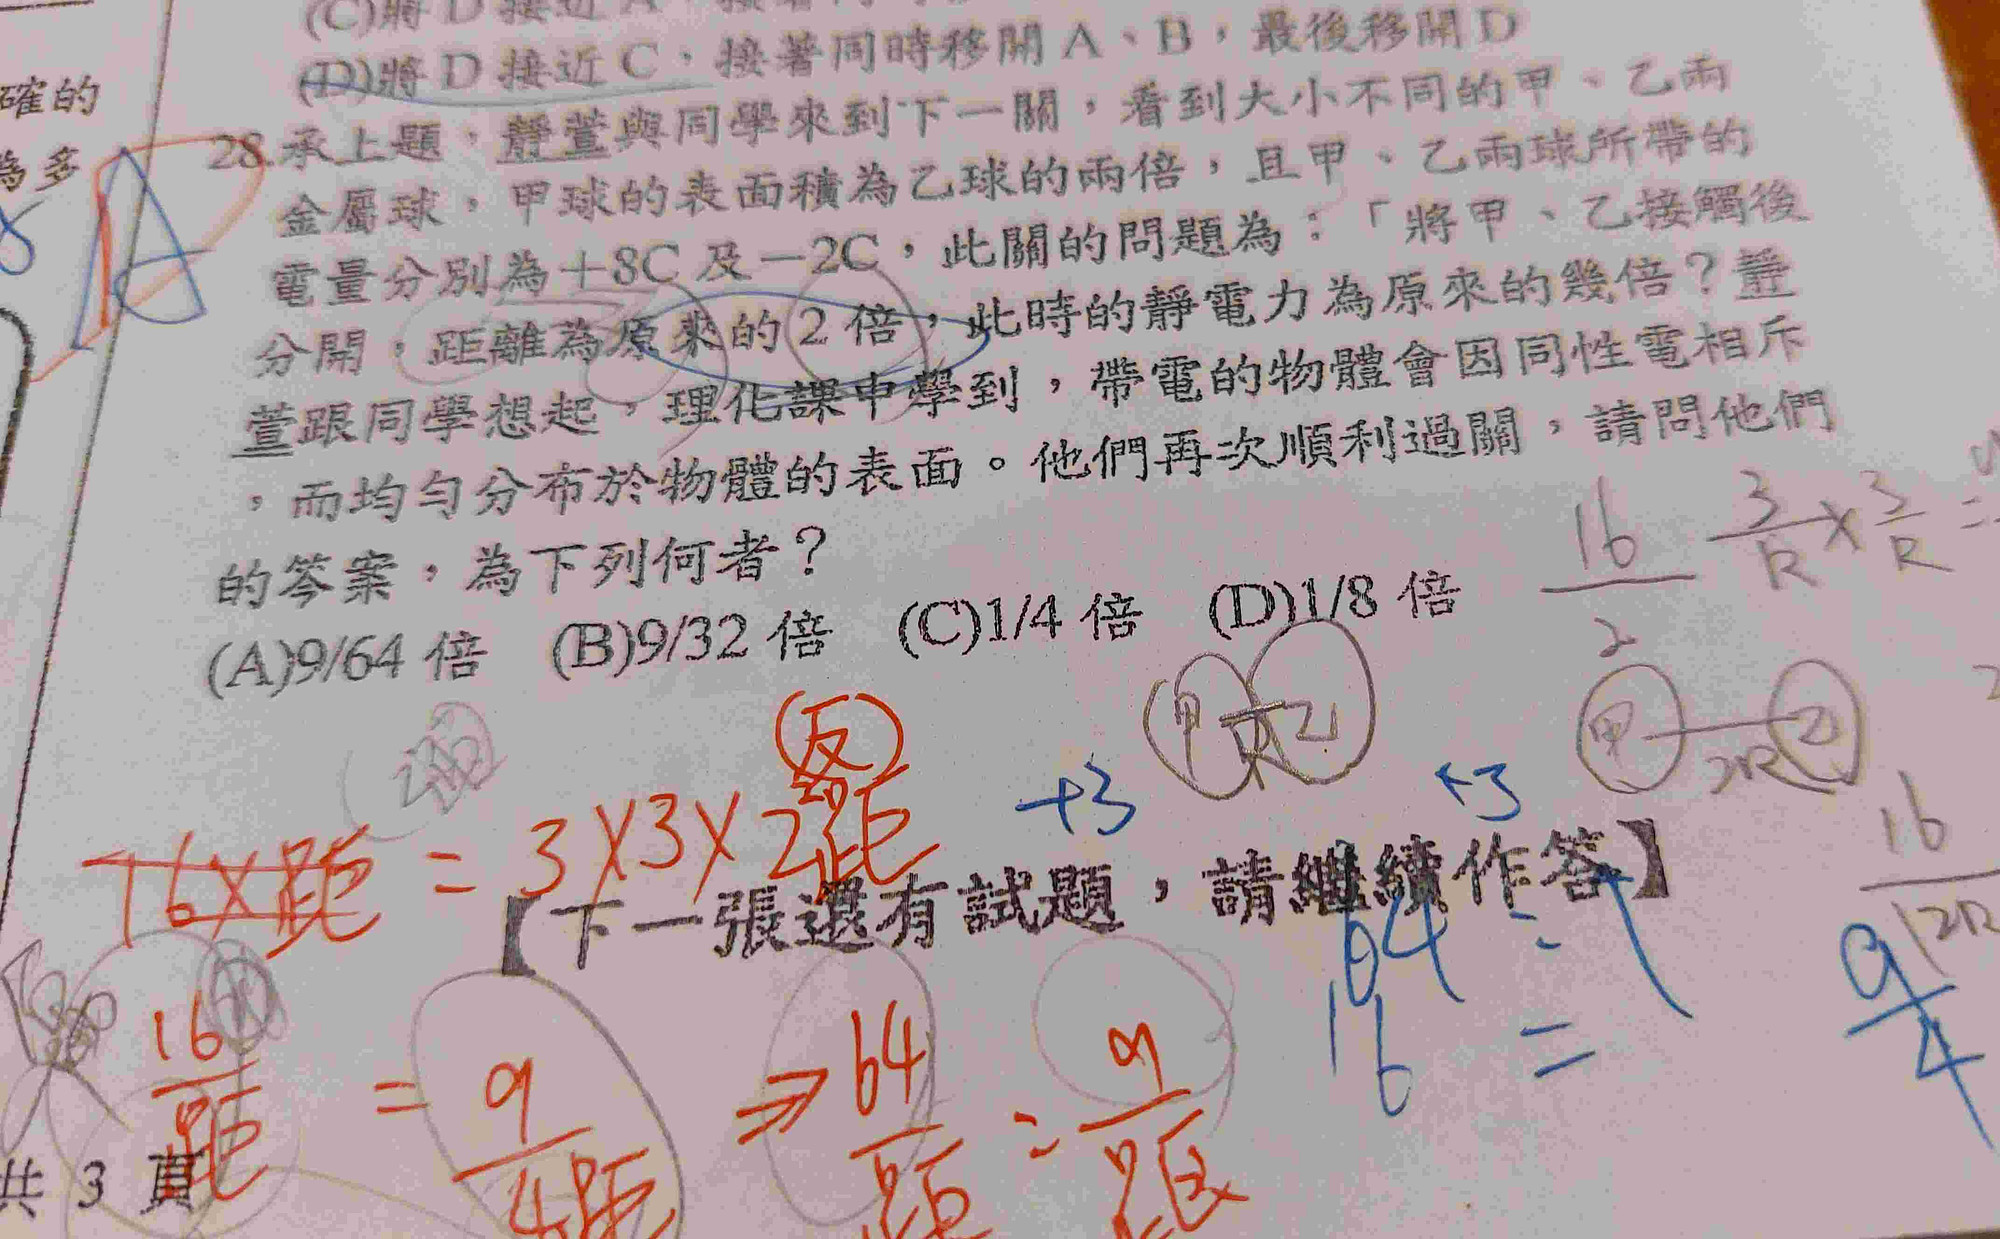 (C)將D接近A,接著同時
(D)將D接近C,接著同時移開A、B,最後移開D
確的
為多
28.承上題,靜萱與同學來到下一關,看到大小不同的甲、乙兩
金屬球,甲球的表面積為乙球的兩倍,且甲、乙兩球所帶的
電量分別為+8C及-2C,此關的問題為:「將甲、乙接觸後
分開,距離為原來的2倍,此時的靜電力為原來的幾倍?靜
萱跟同學想起,理化課中學到,帶電的物體會因同性電相斥
,而均勻分布於物體的表面。他們再次順利過關,請問他們
的答案,為下列何者?
(A)9/64倍 (B)9/32倍 (C)1/4倍 (D)1/8倍
A
16/2
3/R×3/R=
反
甲 R 乙
甲 2R 乙
+3 +3
16×距=3×3×2距
【下一張還有試題,請繼續作答】
16/12R
64:1
16=
9/4
16/距=9/4距⇒64/距:9/距
共3頁